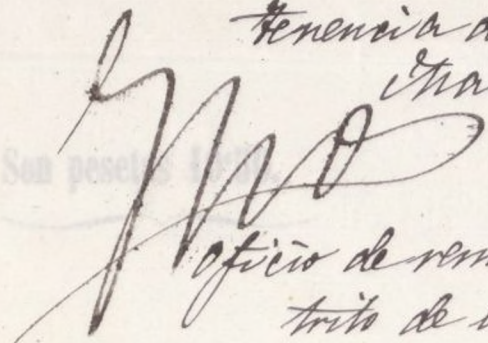 tenencia d
Ma
Son pesetas 10'50.
oficio de rem
trito de l